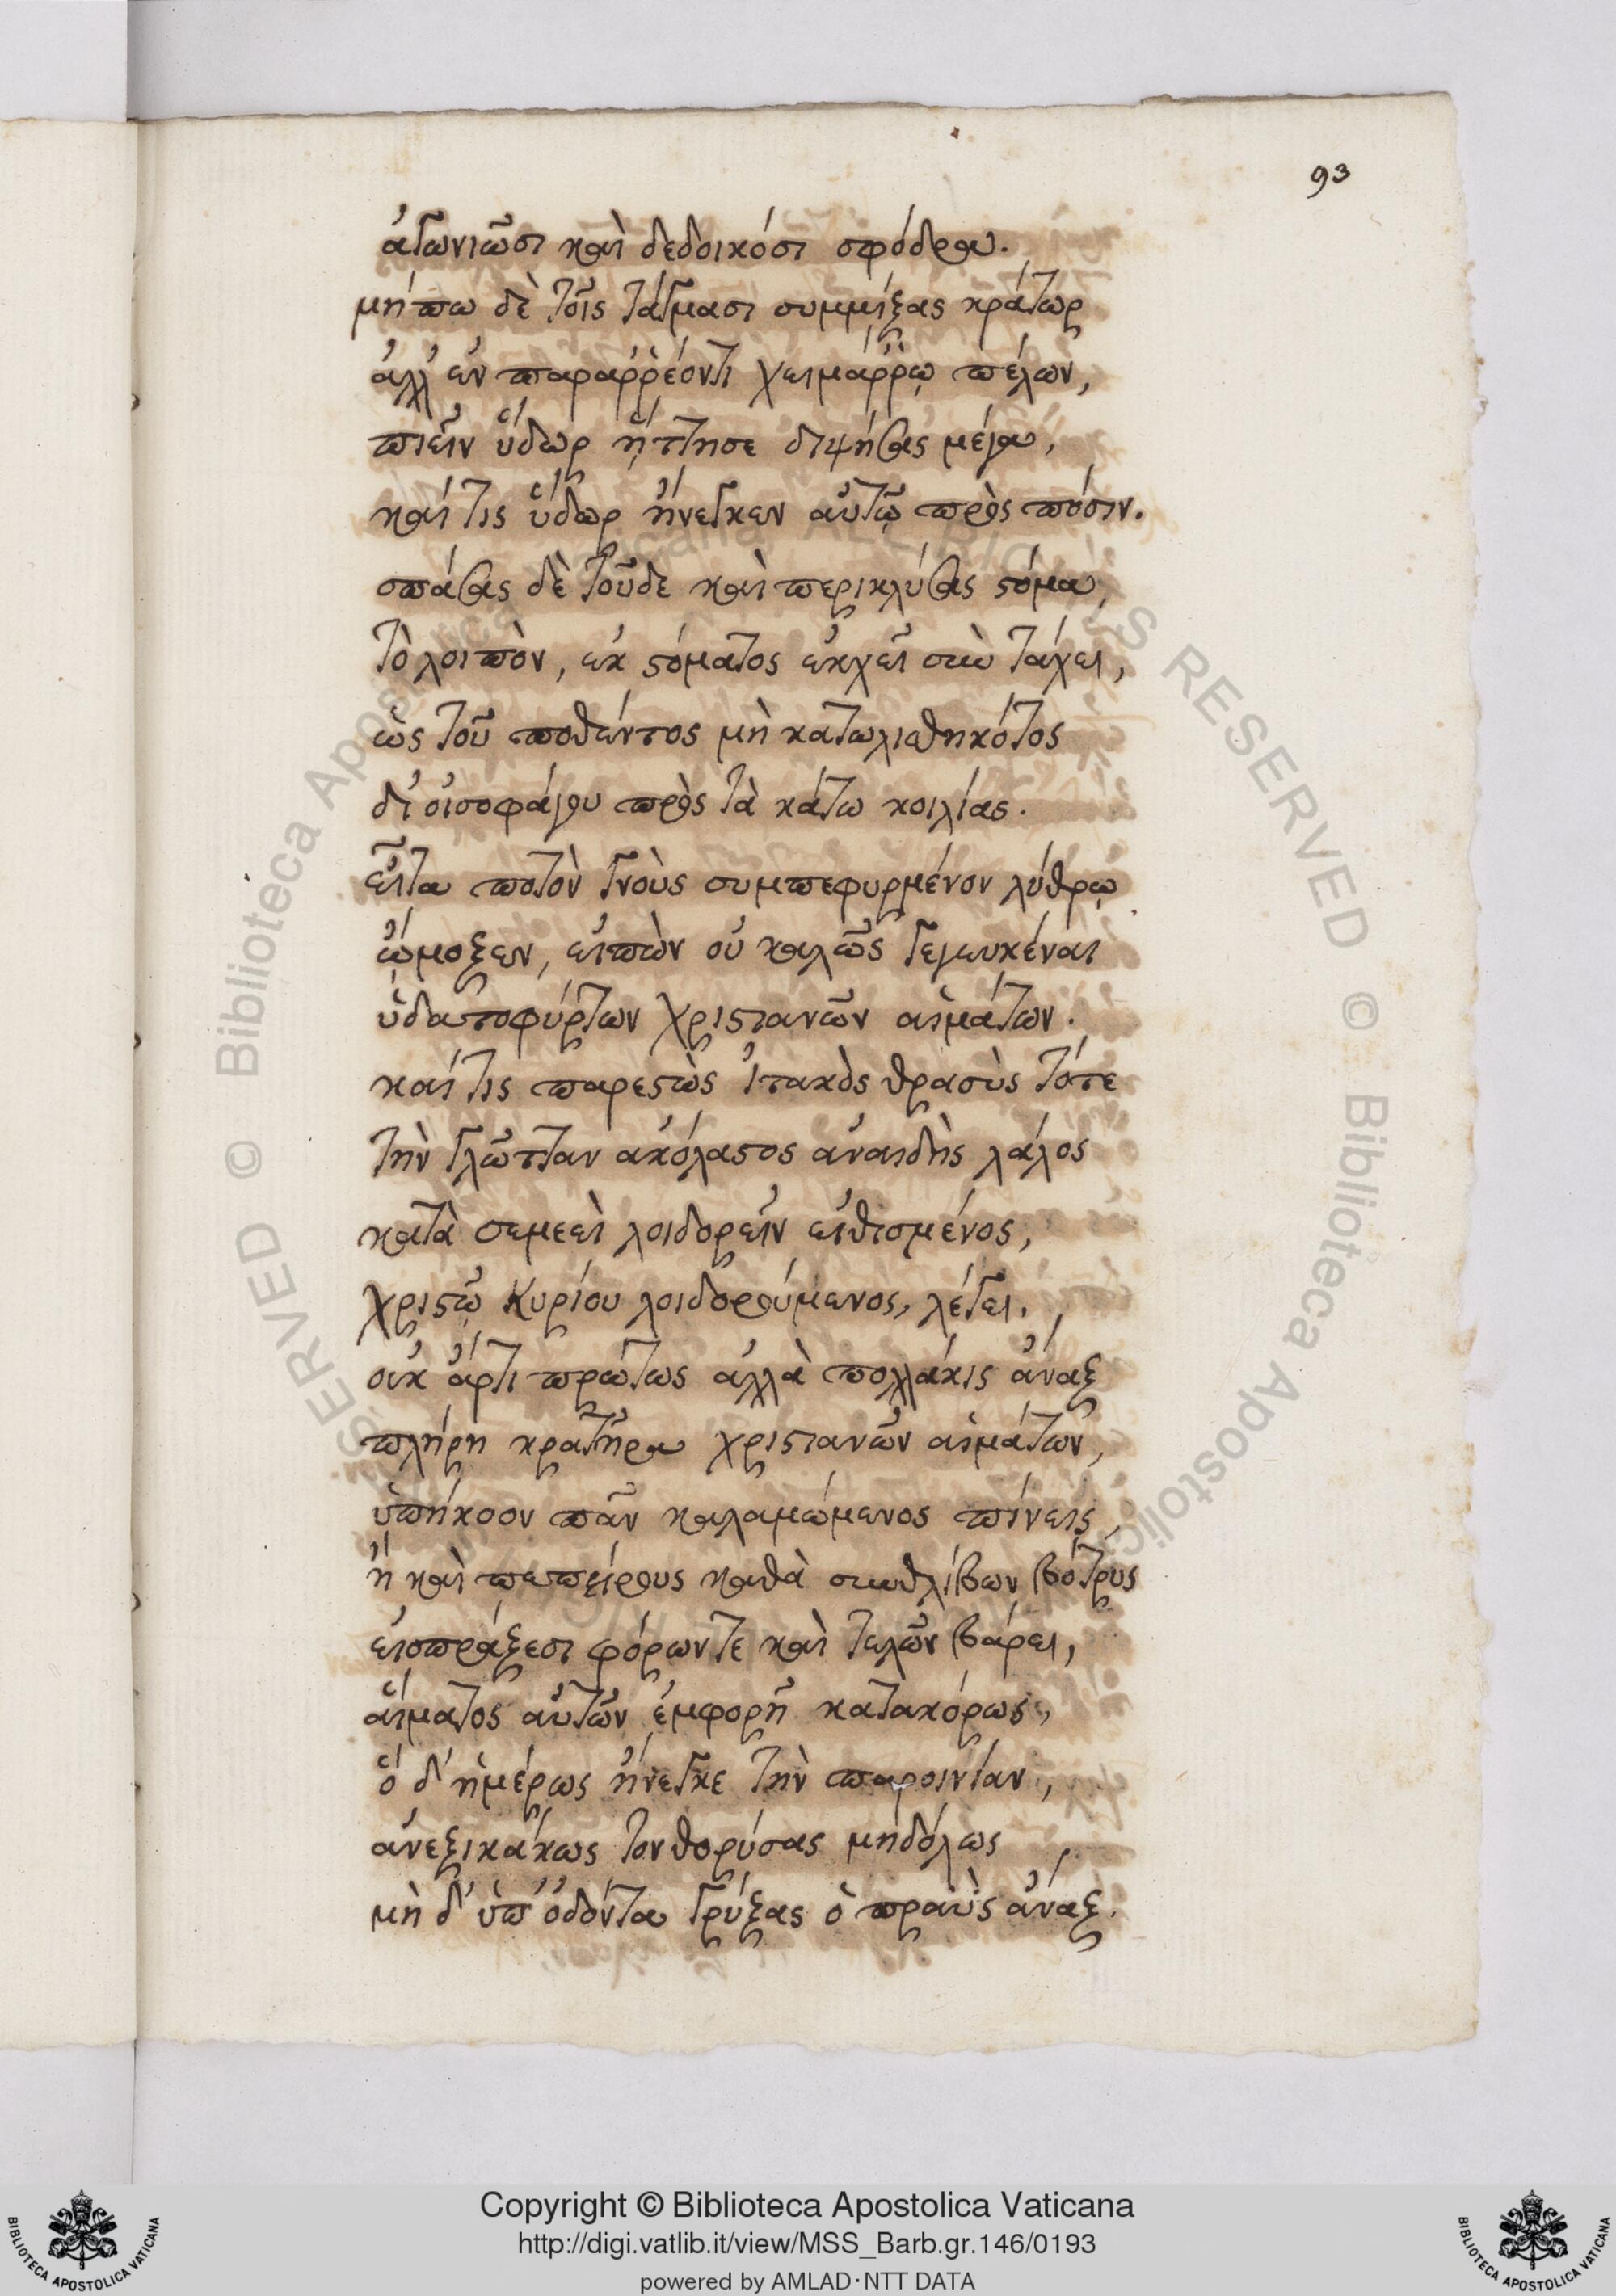 93
ἀγωνιῶσι καὶ δεδοικόσι σφόδρα.
μήπω δὲ τοῖς τάγμασι συμμίξας κράτωρ
ἀλλ' ἐν παραῤῥέοντι χειμάῤῥῳ πέλων,
πιεῖν ὕδωρ ᾔτησε διψήσας μέγα,
καί τις ὕδωρ ἤνεγκεν αὐτῷ πρὸς πόσιν.
σπάσας δὲ τοῦδε καὶ περικλύσας στόμα,
τὸ λοιπὸν, ἐκ στόματος ἐκχεῖ σὺν τάχει,
ὡς τοῦ ποθέντος μὴ κατωλισθηκότος
δι' οἰσοφάγου πρὸς τὰ κάτω κοιλίας.
εἶτα ποτὸν γνοὺς συμπεφυρμένον λύθρῳ
ᾤμοξεν, εἰπὼν οὐ καλῶς γεγευκέναι
ὑδατοφύρτων χριστιανῶν αἱμάτων.
καί τις παρεστὼς ἰτακὸς θρασὺς τότε
τὴν γλῶτταν ἀκόλαστος ἀναιδὴς λάλος
κατὰ σεμεεὶ λοιδορεῖν εἰθισμένος,
χριστῷ Κυρίου λοιδορούμενος, λέγει,
οὐκ ἄρτι πρώτως ἀλλὰ πολλάκις ἄναξ
πλήρη κρατῆρα χριστιανῶν αἱμάτων,
ὑπήκοον πᾶν καλαμώμενος πίνεις,
ἢ καὶ πεπείρους καθὰ συνθλίβων βότρυς
εἰσπράξεσι φόρωντε καὶ τελῶν βάρει,
αἵματος αὐτῶν ἐμφορῇ κατακόρως,
ὁ δ' ἡμέρως ἤνεγκε τὴν παροινίαν,
ἀνεξικάκως τονθορύσας μηδόλως
μὴ δ' ὑπ' ὀδόντα γρύξας ὁ πραῢς ἄναξ.
Copyright © Biblioteca Apostolica Vaticana
http://digi.vatlib.it/view/MSS_Barb.gr.146/0193
powered by AMLAD·NTT DATA